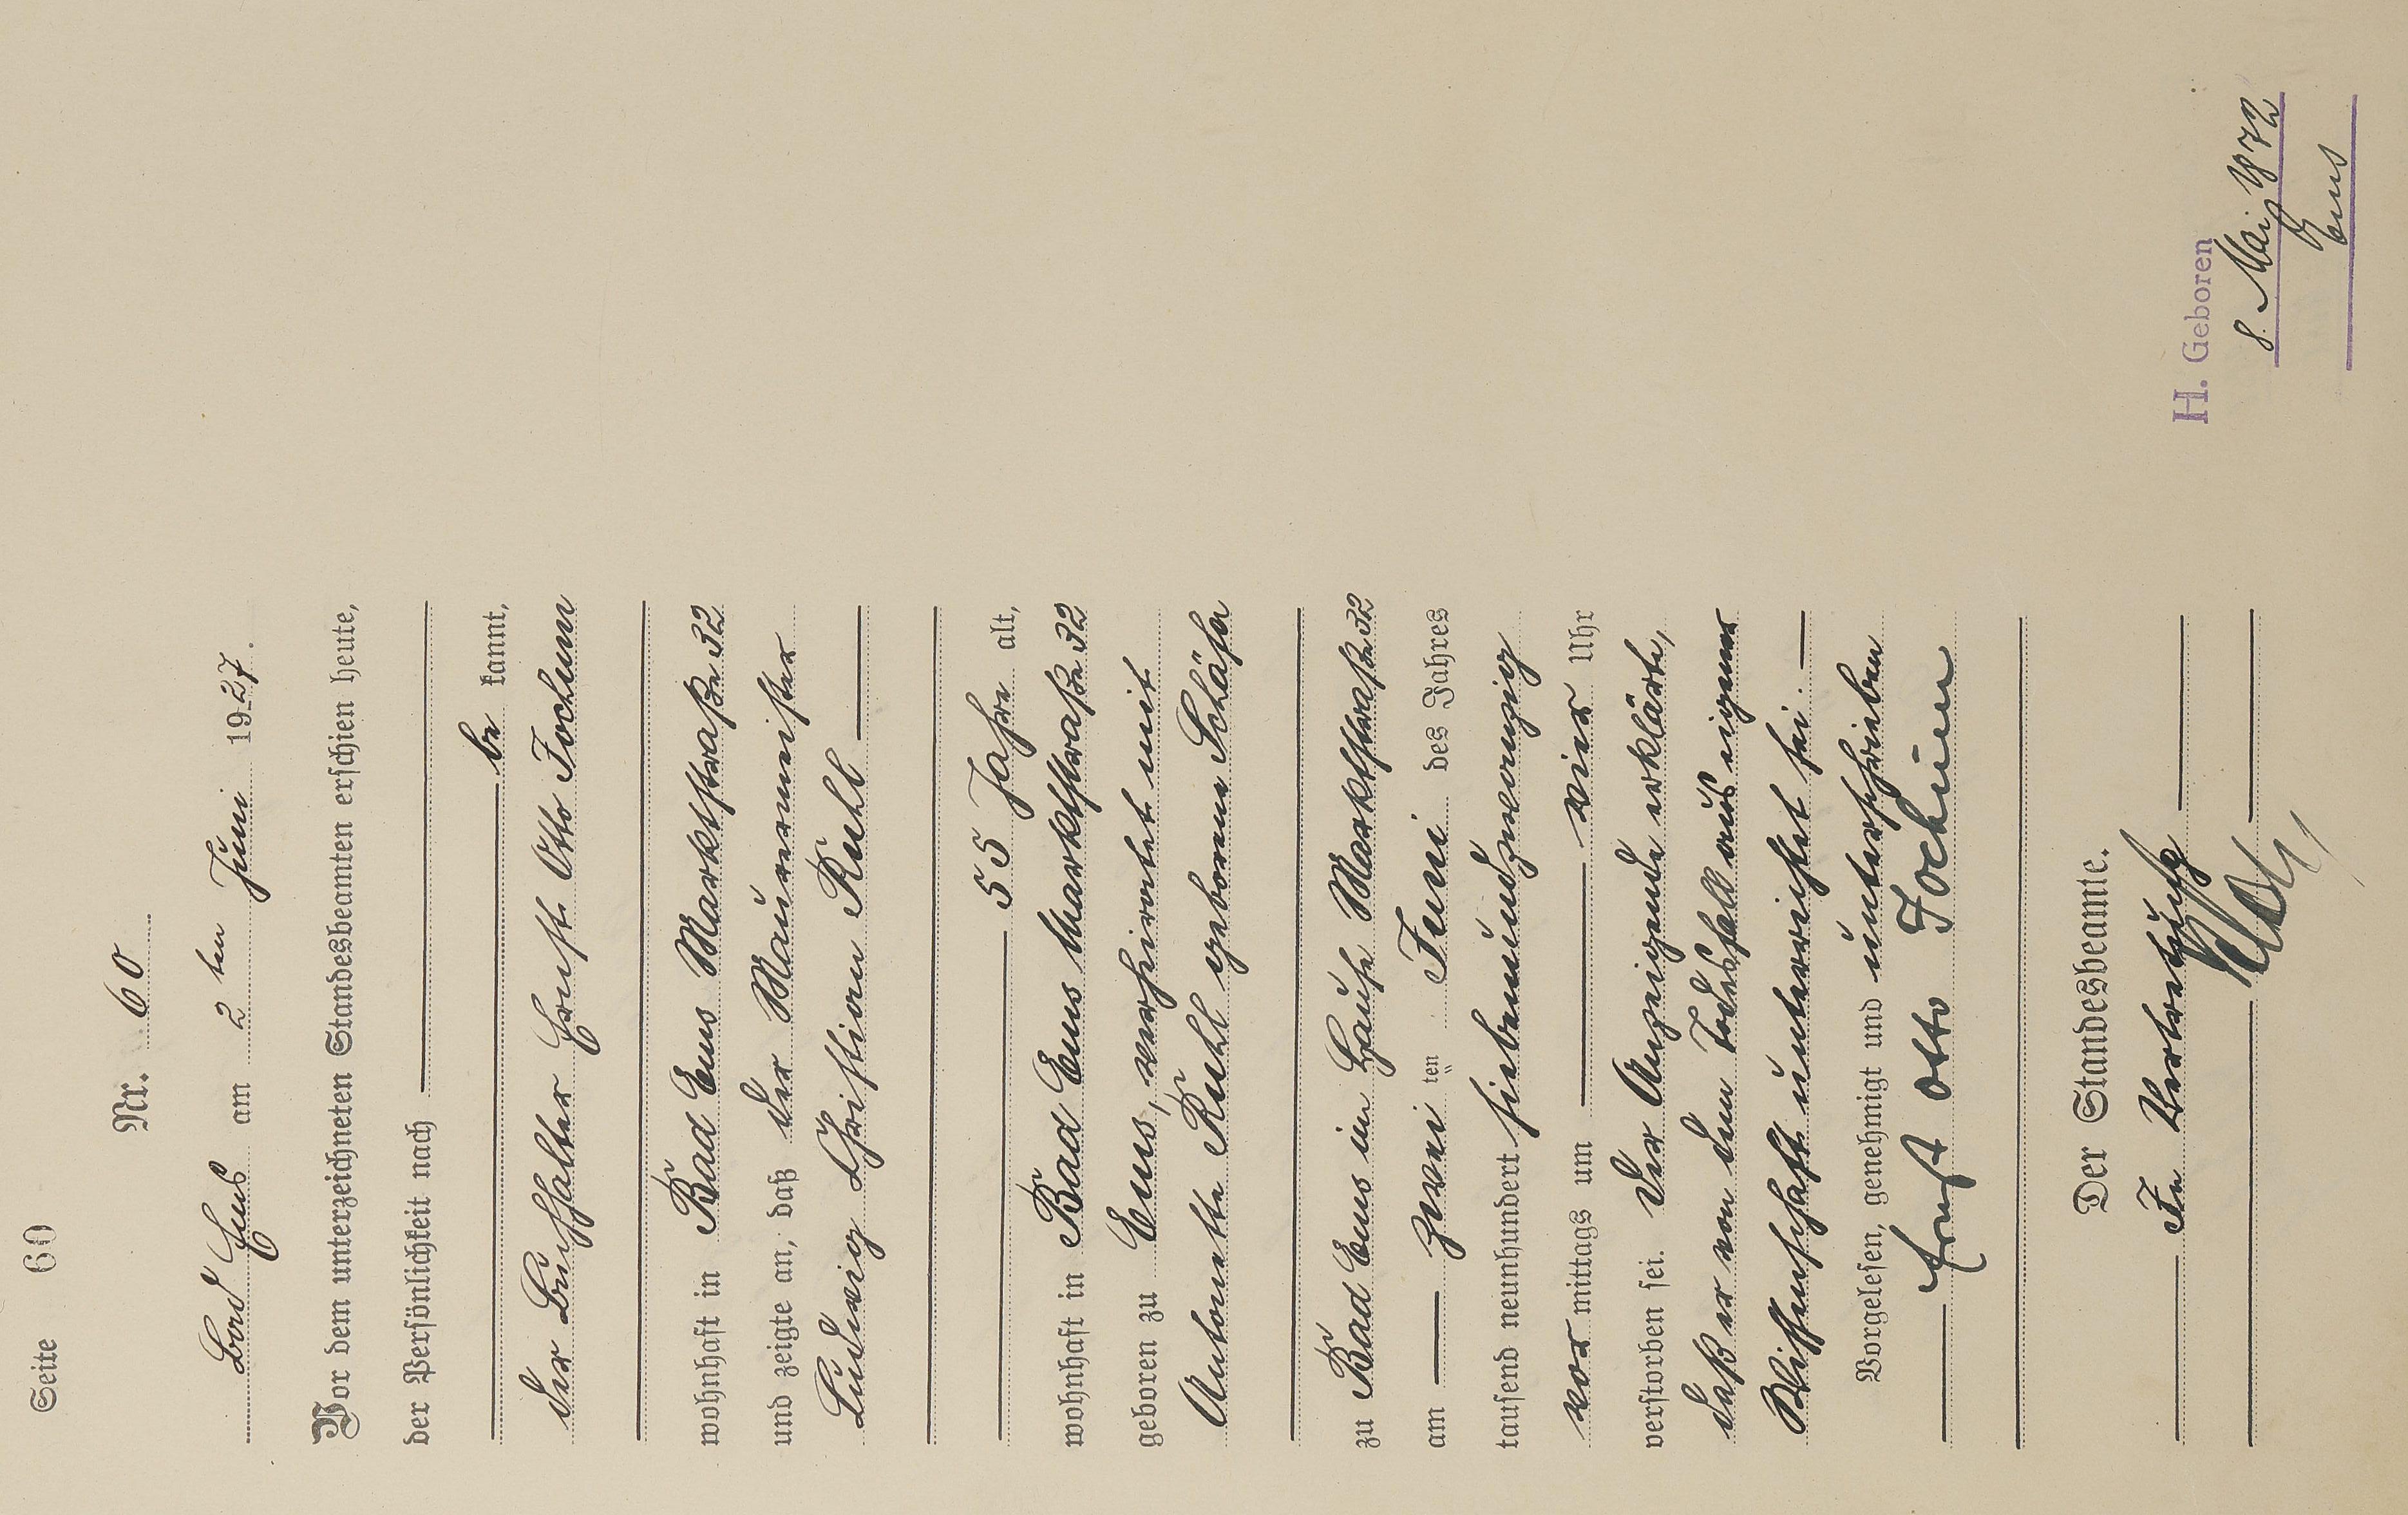 Seite 60
Nr. 60
Bad Ems am 2ten Juni 1927.
Vor dem unterzeichneten Standesbeamten erschien heute,
der Persönlichkeit nach
be kannt,
der Buchhalter Ernst Otto Jochum
wohnhaft in Bad Ems Marktstraße 32
und zeigte an, daß der Maurermeister
Ludwig Christian Ruhl
55 Jahre alt,
wohnhaft in Bad Ems Marktstraße 32
geboren zu Ems, verheiratet mit
Antonette Ruhl geborene Schäfer
zu Bad Ems im Hause Marktstraße 32
am zwei ten Juni des Jahres
tausend neunhundert siebenundzwanzig
vor mittags um vier Uhr
verstorben sei. Der Anzeigende erklärte,
daß er von dem Todesfall aus eigener
Wissenschaft unterrichtet sei.
Vorgelesen, genehmigt und unterschrieben
Ernst Otto Jochum
Der Standesbeamte.
In Vertretung
H. Geboren
8. Mai 1872
Ems